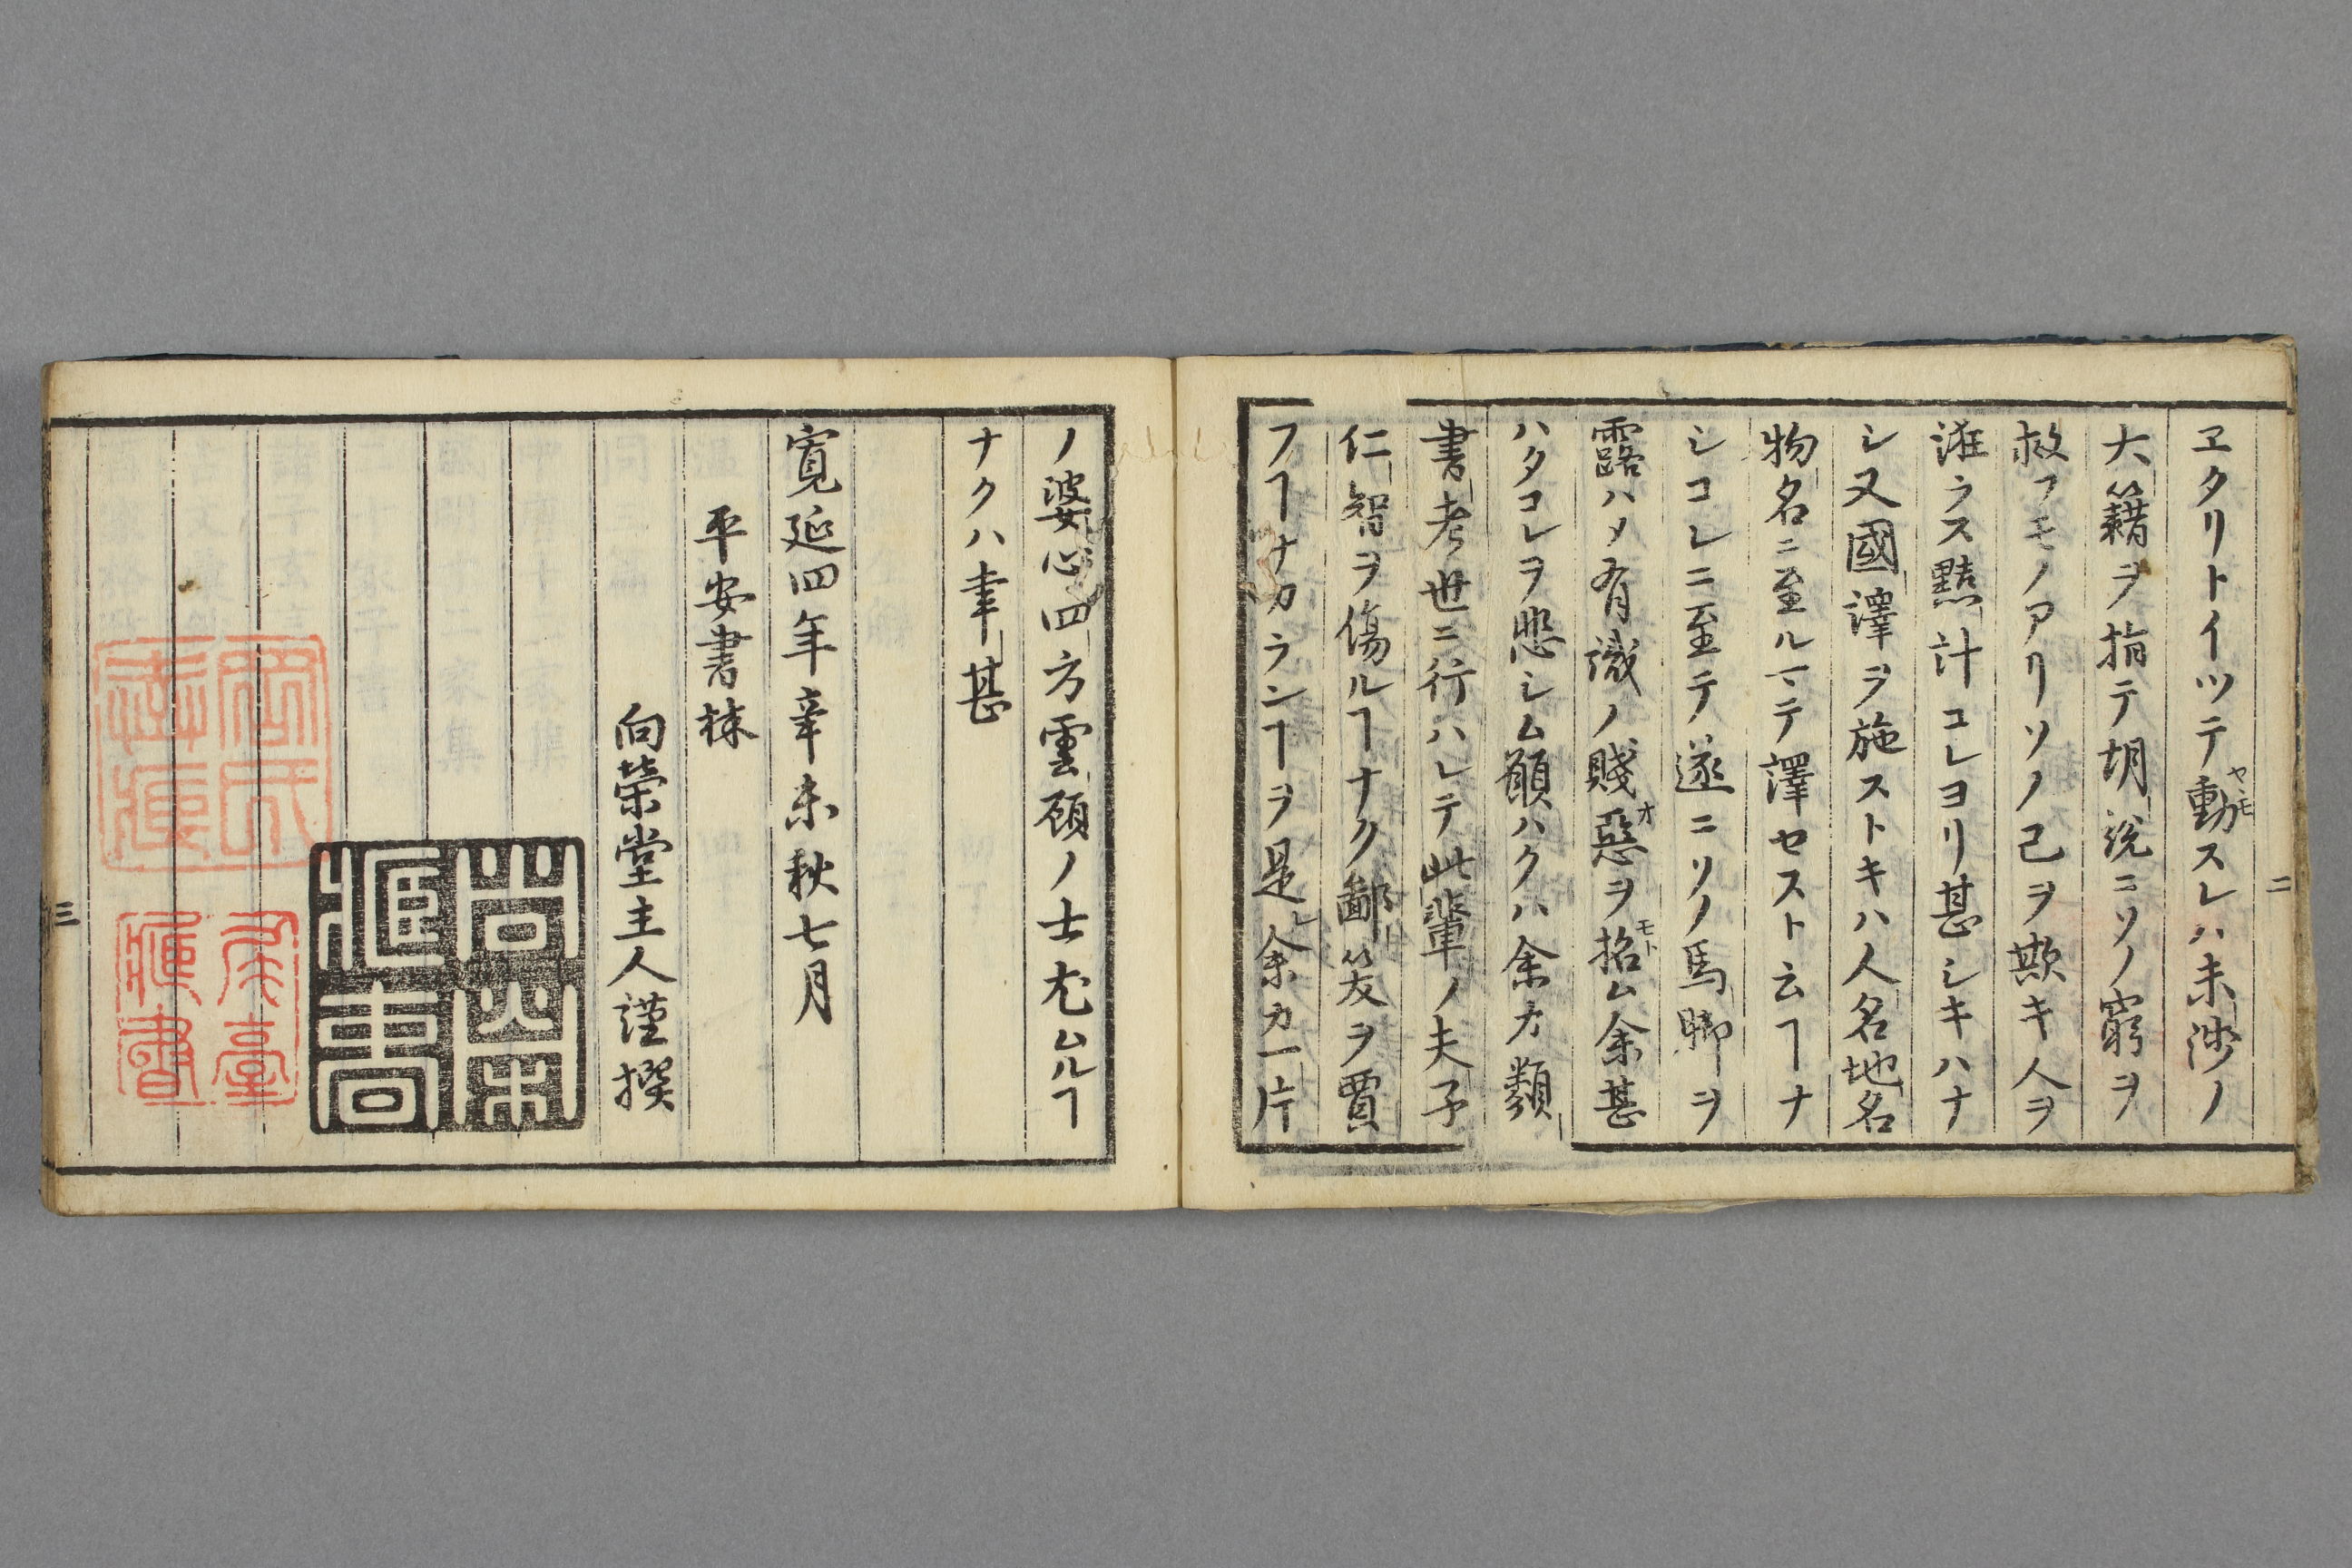 ヱクリトイツテ動スレハ未渉ノ
ヤヽモ
大籍ヲ指テ胡説ニソノ窮ヲ
救フモノアリソノ己ヲ欺キ人ヲ
誑ラス黠計コレヨリ甚シキハナ
シ又國譯ヲ施ストキハ人名地名
物名ニ至ルマテ譯セスト云ヿナ
シコレニ至テ遂ニソノ馬脚ヲ
露ハメ有識ノ賤惡ヲ招ム余甚
オ
モト
ハタコレヲ悲シム願ハクハ余カ類
書考世ニ行ハレテ此輩ノ夫子
仁智ヲ傷ルヿナク鄙笑ヲ買
フヿナカランヿヲ是余カ一片
レ
二
ノ婆心四方雲顧ノ士尤ムルヿ
ナクハ幸甚
寛延四年辛未秋七月
平安書林
向榮堂主人謹撰
三